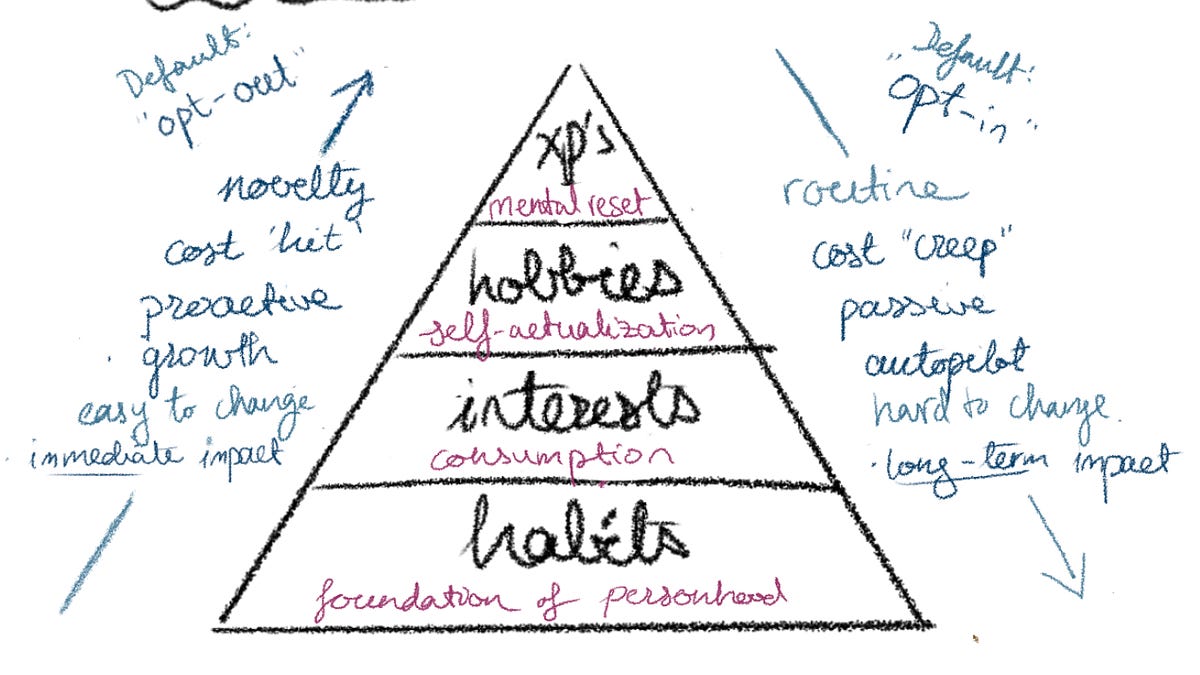 Default:
"opt-out"
novelty
cost 'hit'
proactive
growth
easy to change
immediate impact
xp's
mental reset
hobbies
self-actualization
interests
consumption
habits
foundation of personhood
"Default:
opt-in"
routine
cost "creep"
passive
autopilot
hard to change.
long-term impact